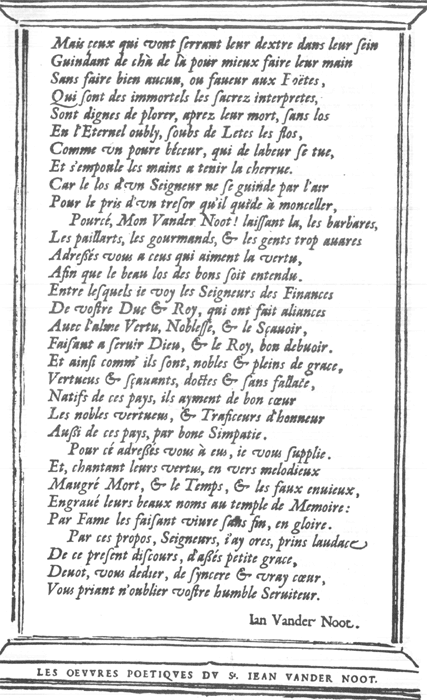 Mais ceux qui vont ſerrant leur dextre dans leur ſein
Guindant de chà de là pour mieux faire leur main
Sans faire bien aucun, ou faueur aux Poëtes,
Qui ſont des immortels les ſacrez interpretes,
Sont dignes de plorer, aprez leur mort, sans los
En l'Eternel oubly, ſoubs de Letes les flos,
Comme vn poure bêceur, qui de labeur ſe tue,
Et s'empoule les mains a tenir la cherrue.
Car le los d'vn Seigneur ne ſe guinde par l'air
Pour le pris d'vn treſor qu'il quide à monceller,
Pourcé, Mon Vander Noot! laiſſant la, les barbares,
Les paillarts, les gourmands, & les gents trop auares
Adreſſés vous a ceus qui aiment la vertu,
Afin que le beau los des bons ſoit entendu.
Entre leſquels ie voy les Seigneurs des Finances
De voſtre Duc & Roy, qui ont fait aliances
Auec l'alme Vertu, Nobleſſe, & le Sçauoir,
Faiſant a ſeruir Dieu, & le Roy, bon debuoir.
Et ainſi comm' ils ſont, nobles & pleins de grace,
Vertueus & ſçauants, doctes & ſans fallace,
Natifs de ces pays, ils ayment de bon cœur
Les nobles vertueus, & Traficeurs d'honneur
Auſſi de ces pays, par bone Simpatie.
Pour cé adreſſés vous à eus, ie vous ſupplie.
Et, chantant leurs vertus, en vers melodieux
Maugré Mort, & le Temps, & les faux enuieux,
Engraué leurs beaux noms au temple de Memoire:
Par Fame les faiſant viure ſans fin, en gloire.
Par ces propos, Seigneurs, i'ay ores, prins laudace
De ce preſent diſcours, d'aſſés petite grace,
Deuot, vous dedier, de ſyncere & vray cœur,
Vous priant n'oublier voſtre humble Seruiteur.
Ian Vander Noot.
LES OEVVRES POETIQVES DV Sr. IEAN VANDER NOOT.